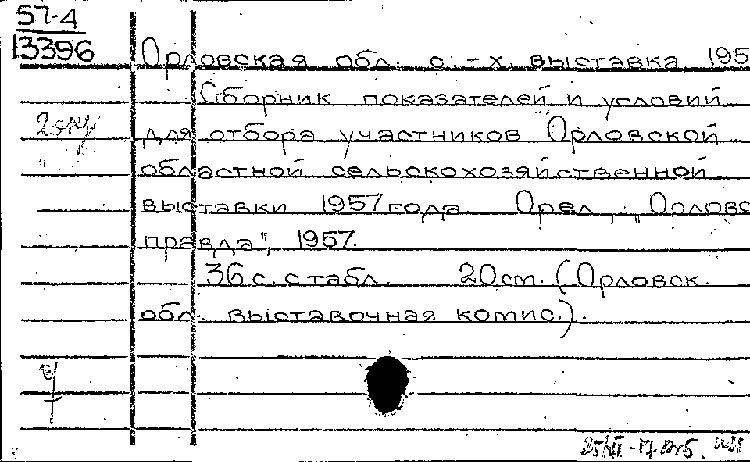 57-4
13396
Орловская обл. с.-х. выставка 195
Сборник показателей и условий
для отбора участников Орловской
областной сельскохозяйственной
выставки 1957 года. Орел, „Орловс
правда", 1957.
36 с. с табл. 20 см. (Орловск.
обл. выставочная комис.).